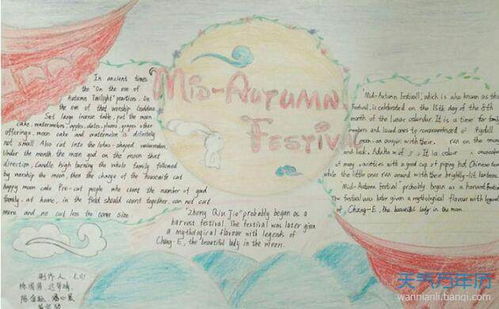 MID-AUTUMN
FESTIVAL
In ancient times
the "On the eve of
Autumn Twilight" practices. On
the eve of that worship Goddess
Set large incense table, put the moon
cake, watermelons, apples, dates, plums, grapes other
offerings, moon cake and watermelon is definitely
not small. Also cut into the lotus-shaped watermelon.
Under the month, the moon god on the moon that
direction, Candle high burning, the whole family followed
by worship the moon, then the charge of the housewife cut
happy moon cake. Pre-cut people who count the number of good
family, at home, in the field should count together, can not cut
more and no cut less the same size
"Zhong Qiu Jie" probably began as a
harvest festival. The festival was later given
a mythological flavour with legends of
Chang-E, the beautiful lady in the moon.
Mid-Autumn Festival, which is also known as the
Festival, is celebrated on the 15th day of the 8th
month of the lunar calendar. It is a time for family
members and loved ones to
moon - an auspi
and luck. Adults
of many varieties with a good cup of piping hot Chinese tea
while the little ones run around with their brightly-lit lanterns.
Mid-Autumn Festival probably began as a harvest festival
The festival was later given a mythological flavour with legends
of Chang-E, the beautiful lady in the moon.
制作人
天气万年历
wannianli.banqi.com